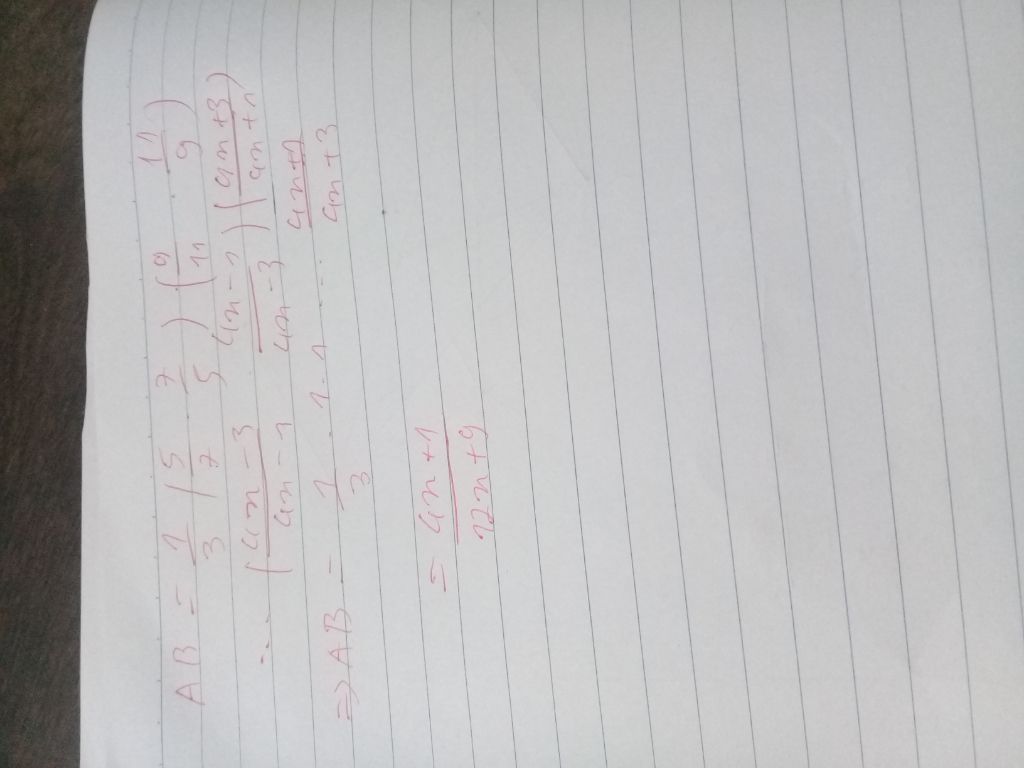 AB = 1/3 (5/7 · 7/5) (9/11 · 11/9)
... (4n-3/4n-1 · 4n-1/4n-3) (4n+3/4n+1)
=> AB = 1/3 · 1 · 1 ... 4n+1/4n+3
= 4n+1/12n+9